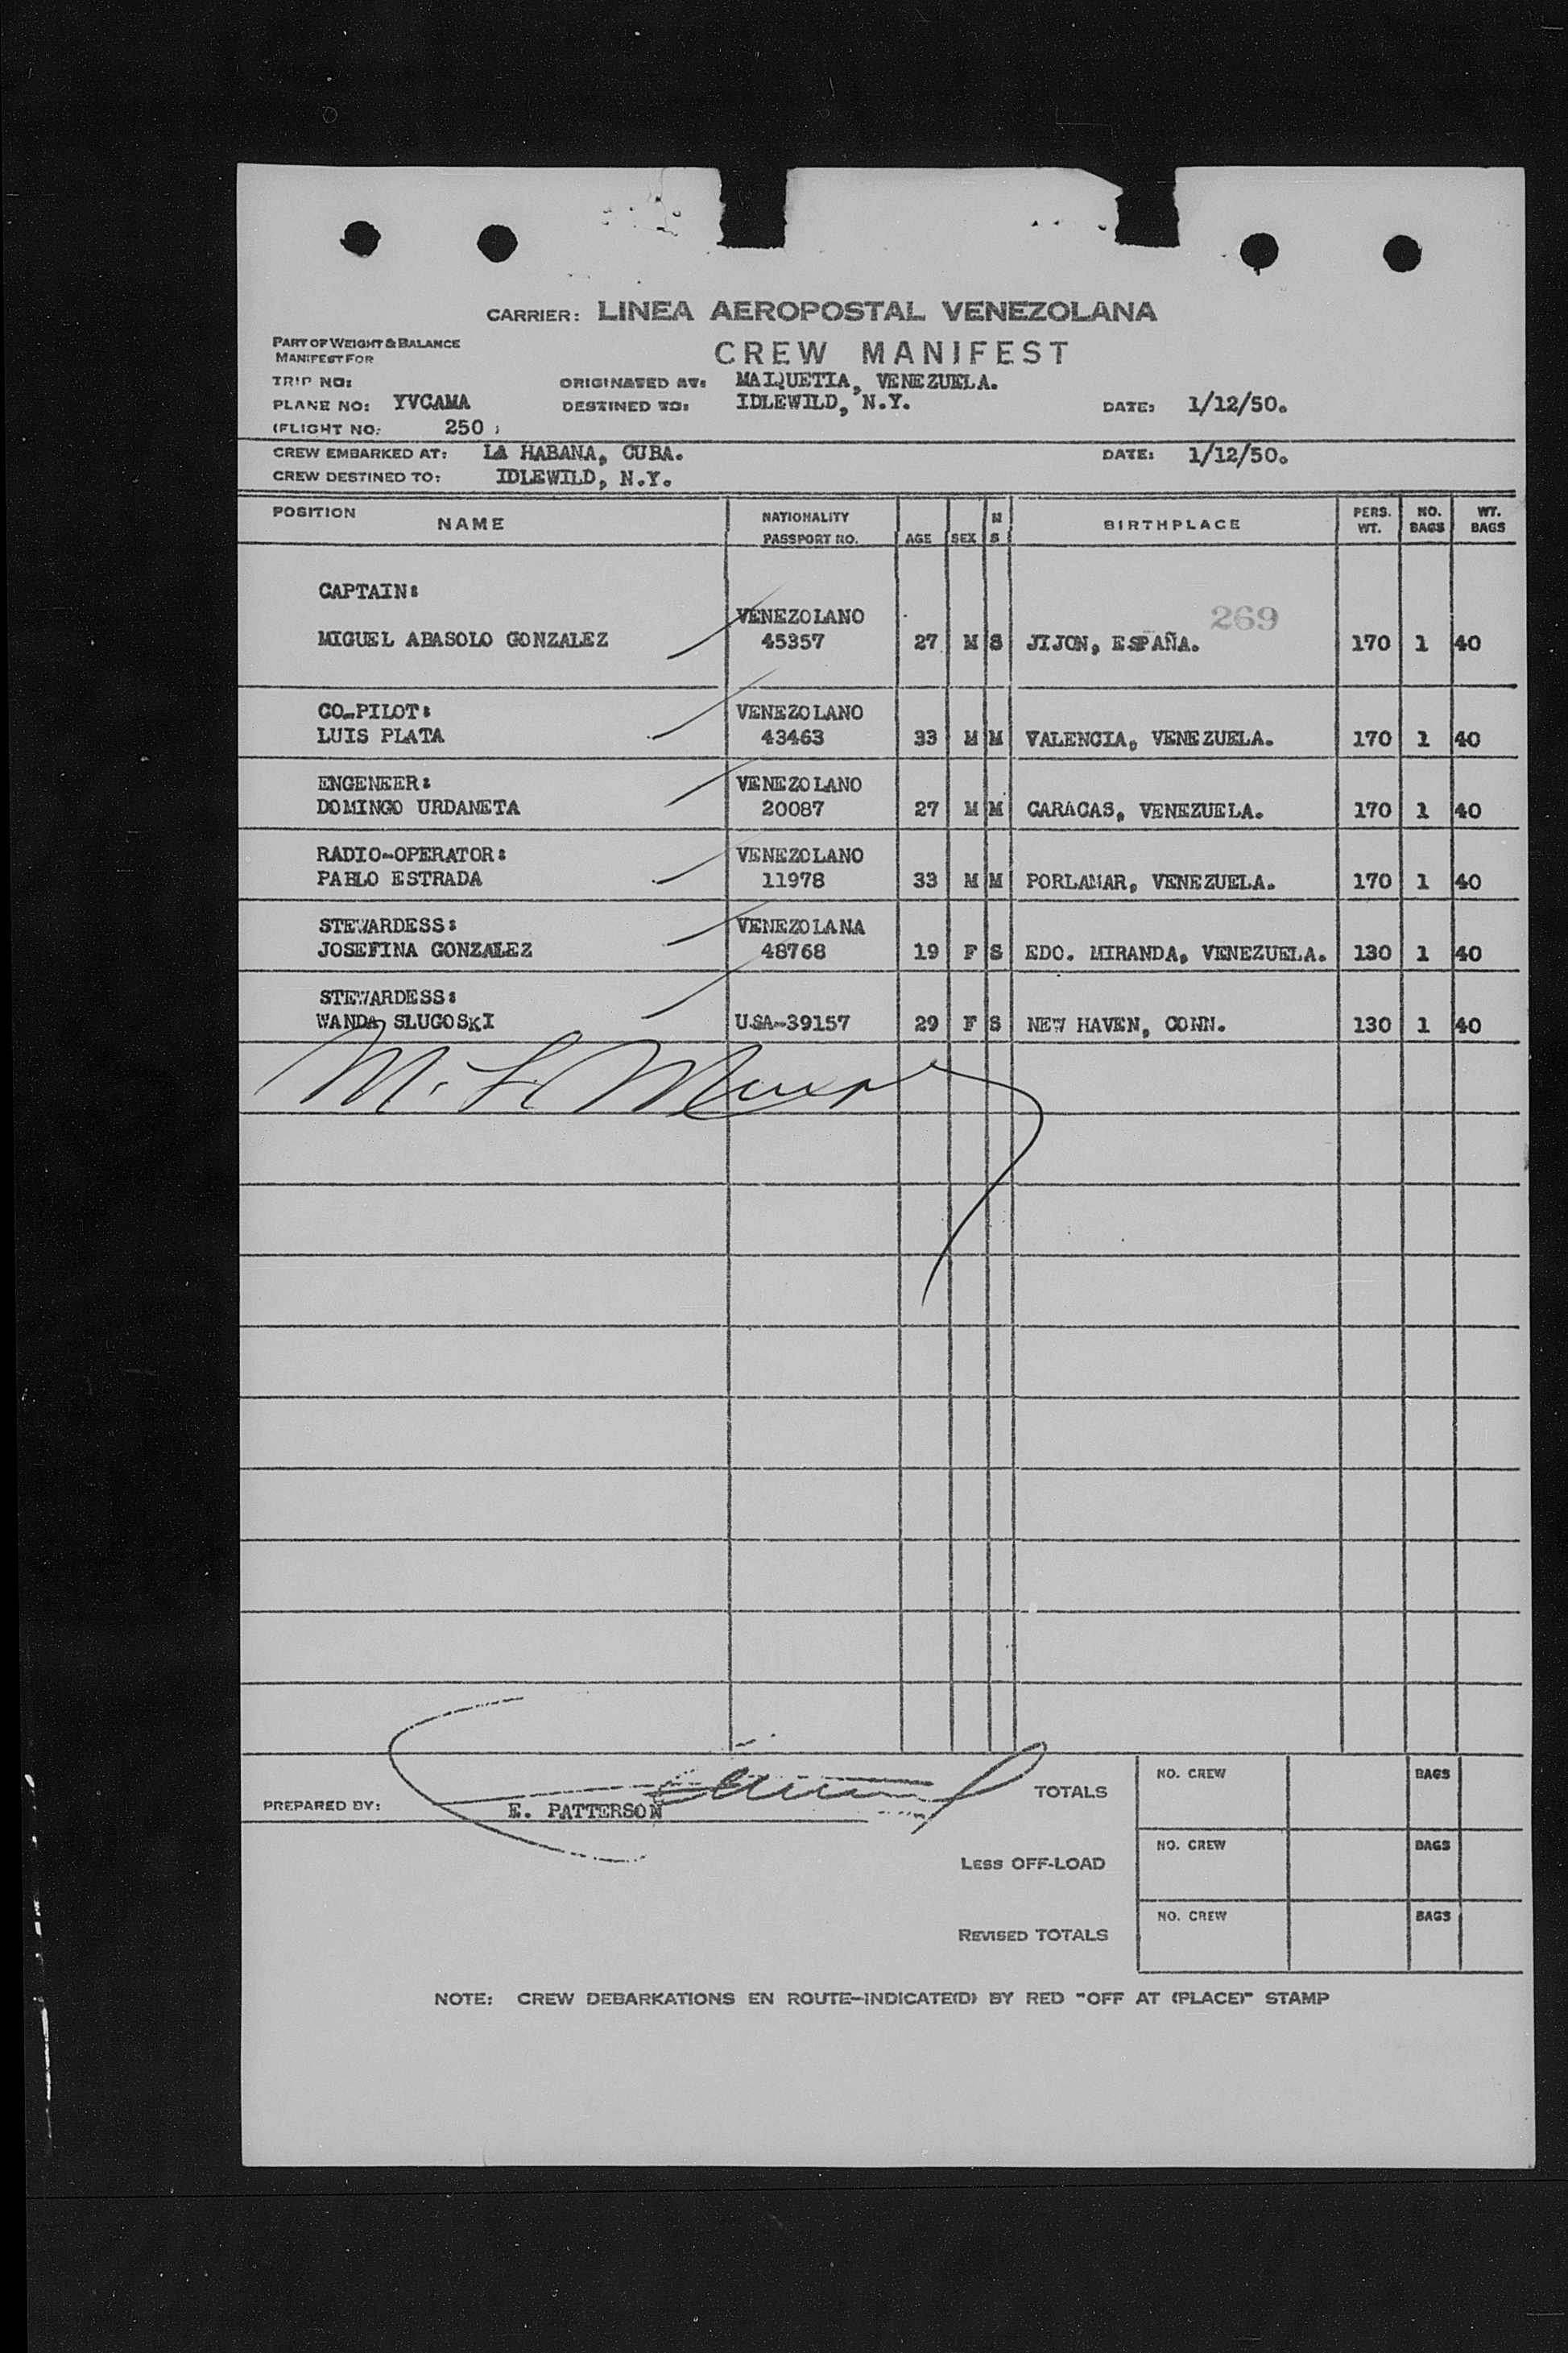 CARRIER: LINEA AEROPOSTAL VENEZOLANA
PART OF WEIGHT & BALANCE
MANIFEST FOR
CREW MANIFEST
TRIP NO: ORIGINATED AT: MAIQUETIA, VENEZUELA.
PLANE NO: YVCAMA DESTINED TO: IDLEWILD, N.Y. DATE: 1/12/50.
(FLIGHT NO: 250
CREW EMBARKED AT: LA HABANA, CUBA. DATE: 1/12/50.
CREW DESTINED TO: IDLEWILD, N.Y.
POSITION NAME NATIONALITY PASSPORT NO. AGE SEX M S BIRTHPLACE PERS. WT. NO. BAGS WT. BAGS
CAPTAIN:
VENEZOLANO 269
MIGUEL ABASOLO GONZALEZ 45357 27 M S JIJON, ESPAÑA. 170 1 40
CO-PILOT: VENEZOLANO
LUIS PLATA 43463 33 M M VALENCIA, VENEZUELA. 170 1 40
ENGENEER: VENEZOLANO
DOMINGO URDANETA 20087 27 M M CARACAS, VENEZUELA. 170 1 40
RADIO-OPERATOR: VENEZOLANO
PABLO ESTRADA 11978 33 M M PORLAMAR, VENEZUELA. 170 1 40
STEWARDESS: VENEZOLANA
JOSEFINA GONZALEZ 48768 19 F S EDO. MIRANDA, VENEZUELA. 130 1 40
STEWARDESS:
WANDA SLUGOSKI USA-39157 29 F S NEW HAVEN, CONN. 130 1 40
TOTALS NO. CREW BAGS
PREPARED BY: E. PATTERSON
LESS OFF-LOAD NO. CREW BAGS
REVISED TOTALS NO. CREW BAGS
NOTE: CREW DEBARKATIONS EN ROUTE-INDICATE(D) BY RED "OFF AT (PLACE)" STAMP